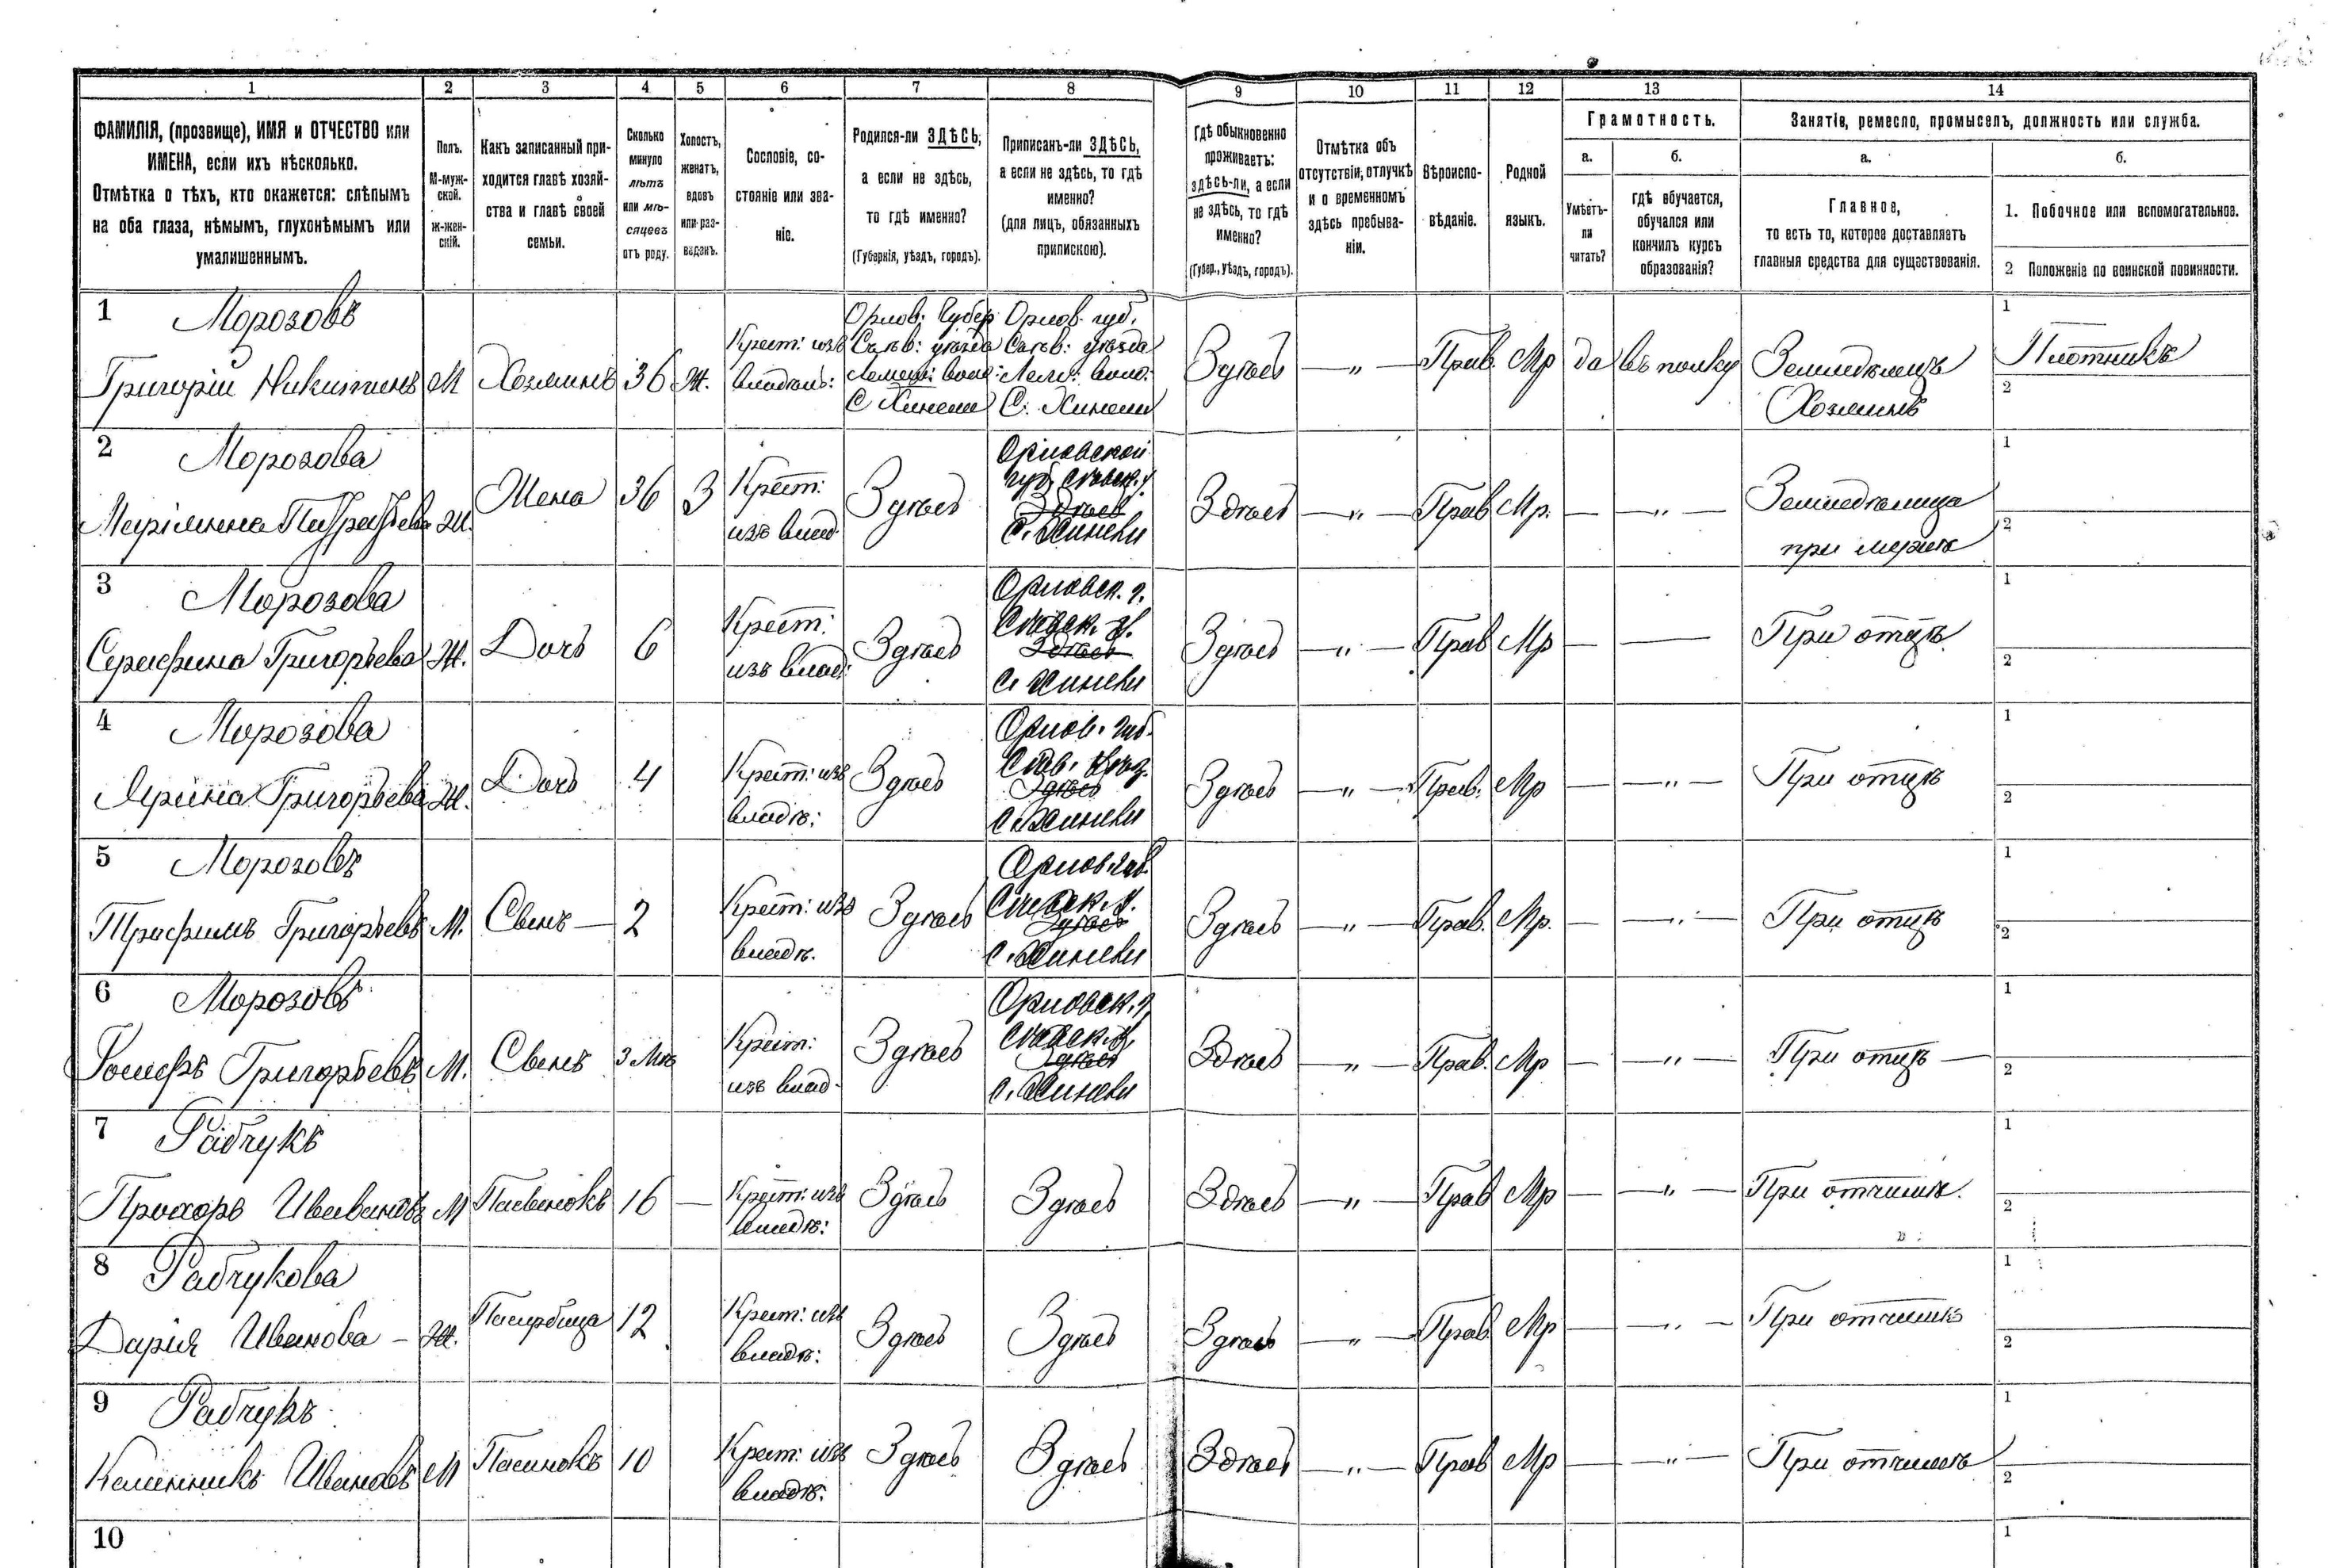 1 2 3 4 5 6 7 8 9 10 11 12 13 14
ФАМИЛІЯ, (прозвище), ИМЯ и ОТЧЕСТВО или
ИМЕНА, если ихъ нѣсколько.
Отмѣтка о тѣхъ, кто окажется: слѣпымъ
на оба глаза, нѣмымъ, глухонѣмымъ или
умалишеннымъ.
Полъ.
М-муж-
ской.
Ж-жен-
скій.
Какъ записанный при-
ходится главѣ хозяй-
ства и главѣ своей
семьи.
Сколько
минуло
лѣтъ
или мѣ-
сяцевъ
отъ роду.
Холостъ,
женатъ,
вдовъ
или раз-
веденъ.
Сословіе, со-
стояніе или зва-
ніе.
Родился-ли ЗДѢСЬ,
а если не здѣсь,
то гдѣ именно?
(Губернія, уѣздъ, городъ).
Приписанъ-ли ЗДѢСЬ,
а если не здѣсь, то гдѣ
именно?
(для лицъ, обязанныхъ
припискою).
Гдѣ обыкновенно
проживаетъ:
здѣсь-ли, а если
не здѣсь, то гдѣ
именно?
(Губер., уѣздъ, городъ).
Отмѣтка объ
отсутствіи, отлучкѣ
и о временномъ
здѣсь пребыва-
ніи.
Вѣроиспо-
вѣданіе.
Родной
языкъ.
Грамотность.
а.
Умѣетъ-
ли
читать?
б.
гдѣ обучается,
обучался или
кончилъ курсъ
образованія?
Занятіе, ремесло, промыселъ, должность или служба.
а.
Главное,
то есть то, которое доставляетъ
главныя средства для существованія.
б.
1. Побочное или вспомогательное.
2 Положеніе по воинской повинности.
1 Морозовъ
Григорій Никитинъ
М
Хозяинъ
36
Ж.
Крест: изъ
владѣль:
Орлов. Губер
Сѣв: уѣзда
С Хинели
Орлов. губ.
Сѣв: уѣзда
С. Хинели
Здѣсь
— „ —
Прав.
Мр
да
въ полку
Земледѣлецъ
Хозяинъ
1
Плотникъ
2
2 Морозова
Ж.
Жена
36
З
Крест:
изъ влад.
Здѣсь
Орловской
губ. Сѣвск. у.
Здѣсь
С. Хинели
Здѣсь
— „ —
Прав
Мр.
—
— „ —
Земледѣлица
при мужѣ
1
2
3 Морозова
Серафима Григорьева
Ж.
Дочь
6
Крест:
изъ влад:
Здѣсь
Орловск. г.
Сѣвск. у.
Здѣсь
С. Хинели
Здѣсь
— „ —
Прав
Мр
—
—
При отцѣ
1
2
4 Морозова
Ирина Григорьева
Ж.
Дочь
4
Крест: изъ
владѣ:
Здѣсь
Орлов. губ.
Сѣв. уѣз.
Здѣсь
С. Хинели
Здѣсь
— „ —
Прав.
Мр
—
— „ —
При отцѣ
1
2
5 Морозовъ
Трофимъ Григорьевъ
М.
Свенъ —
2
Крест: изъ
владѣ.
Здѣсь
Орлов. губ.
Сѣвск. у.
Здѣсь
С. Хинели
Здѣсь
— „ —
Прав.
Мр.
—
— „ —
При отцѣ
1
2
6 Морозовъ
Іосифъ Григорьевъ
М.
Свенъ
3 Мѣ
Крест:
изъ влад.
Здѣсь
Орловск. г.
Сѣвск. у.
Здѣсь
С. Хинели
Здѣсь
— „ —
Прав.
Мр
—
— „ —
При отцѣ —
1
2
7 Рабчукъ
Прохоръ Ивановъ
М
16
—
Крест: изъ
владѣ:
Здѣсь
Здѣсь
Здѣсь
— „ —
Прав
Мр
—
— „ —
При отчимѣ.
1
2
8 Рабчукова
Дарія Иванова —
Ж.
Пасербица
12
Крест: изъ
владѣ:
Здѣсь
Здѣсь
Здѣсь
— „ —
Прав
Мр
—
— „ —
При отчимѣ
1
2
9 Рабчукъ
Калинникъ Ивановъ
М
Пасинокъ
10
Крест: изъ
владѣ:
Здѣсь
Здѣсь
Здѣсь
— „ —
Прав
Мр
—
— „ —
При отчимѣ
1
2
10
1